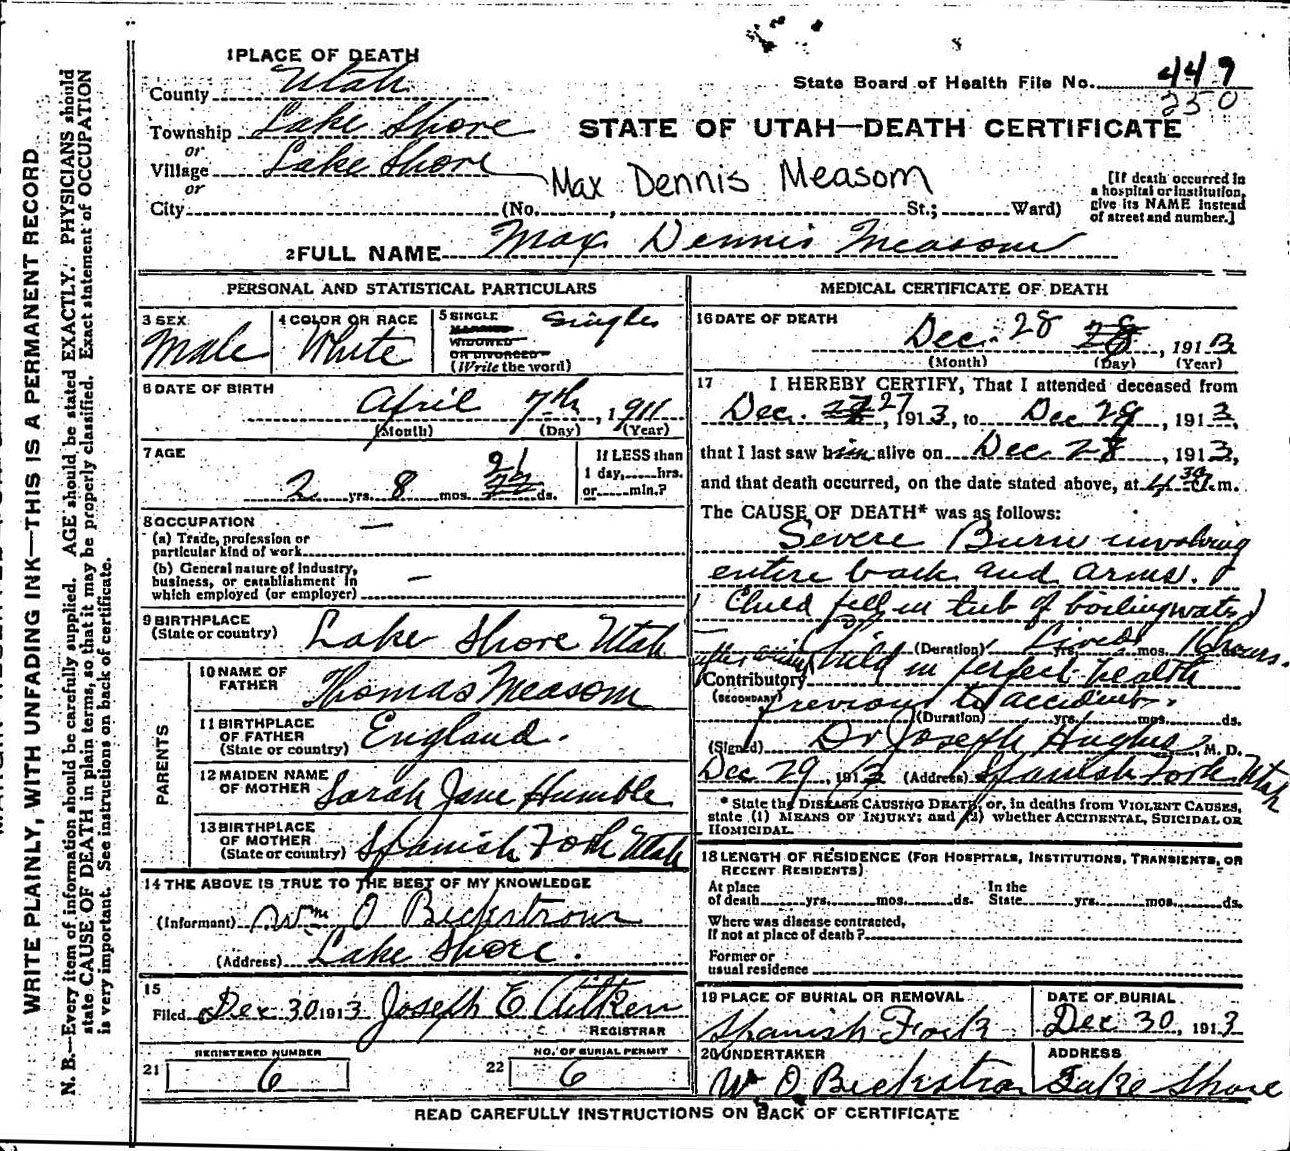 1 PLACE OF DEATH
County Utah
State Board of Health File No. 449
250
Township Lake Shore
or
STATE OF UTAH—DEATH CERTIFICATE
Village Lake Shore
or
Max Dennis Measom
[If death occurred in a hospital or institution, give its NAME instead of street and number.]
City (No. , St.; Ward)
2 FULL NAME Max Dennis Measom
PERSONAL AND STATISTICAL PARTICULARS
3 SEX
Male
4 COLOR OR RACE
White
5 SINGLE
MARRIED
WIDOWED
OR DIVORCED
(Write the word)
Single
6 DATE OF BIRTH
April 7th, 1911
(Month) (Day) (Year)
7 AGE
21
2 yrs. 8 mos. 22 ds.
If LESS than
1 day, hrs.
or min.?
8 OCCUPATION
(a) Trade, profession or
particular kind of work —
(b) General nature of industry,
business, or establishment in
which employed (or employer) —
9 BIRTHPLACE
(State or country) Lake Shore Utah
PARENTS
10 NAME OF
FATHER Thomas Measom
11 BIRTHPLACE
OF FATHER
(State or country) England.
12 MAIDEN NAME
OF MOTHER Sarah Jane Humble
13 BIRTHPLACE
OF MOTHER
(State or country) Spanish Fork Utah
14 THE ABOVE IS TRUE TO THE BEST OF MY KNOWLEDGE
(Informant) Wm O Beckstrom
(Address) Lake Shore.
15
Filed Dec 30 1913 Joseph E Aitken
REGISTRAR
21 REGISTERED NUMBER
6
22 NO. OF BURIAL PERMIT
6
MEDICAL CERTIFICATE OF DEATH
16 DATE OF DEATH
Dec. 28 28, 1913
(Month) (Day) (Year)
17 I HEREBY CERTIFY, That I attended deceased from
Dec. 27, 1913, to Dec 28, 1913,
that I last saw him alive on Dec 28, 1913,
and that death occurred, on the date stated above, at 4 30 a.m.
The CAUSE OF DEATH* was as follows:
Severe Burn involving
entire back and arms.
(Child fell in tub of boiling water)
(Duration) Lived yrs. mos. 16 hours.
Contributory child in perfect health
(SECONDARY) previous to accident.
(Duration) yrs. mos. ds.
(Signed) Dr Joseph Hughes, M. D.
Dec 29, 1913 (Address) Spanish Fork Utah
* State the DISEASE CAUSING DEATH, or, in deaths from VIOLENT CAUSES,
state (1) MEANS OF INJURY; and (2) whether ACCIDENTAL, SUICIDAL OR
HOMICIDAL.
18 LENGTH OF RESIDENCE (FOR HOSPITALS, INSTITUTIONS, TRANSIENTS, OR
RECENT RESIDENTS)
At place
of death yrs. mos. ds.
In the
State yrs. mos. ds.
Where was disease contracted,
if not at place of death?
Former or
usual residence
19 PLACE OF BURIAL OR REMOVAL
Spanish Fork
DATE OF BURIAL
Dec 30, 1913
20 UNDERTAKER
Wm O Beckstrom
ADDRESS
Lake Shore
READ CAREFULLY INSTRUCTIONS ON BACK OF CERTIFICATE
WRITE PLAINLY, WITH UNFADING INK—THIS IS A PERMANENT RECORD
N. B.—Every item of information should be carefully supplied. AGE should be stated EXACTLY. PHYSICIANS should
state CAUSE OF DEATH in plain terms, so that it may be properly classified. Exact statement of OCCUPATION
is very important. See instructions on back of certificate.